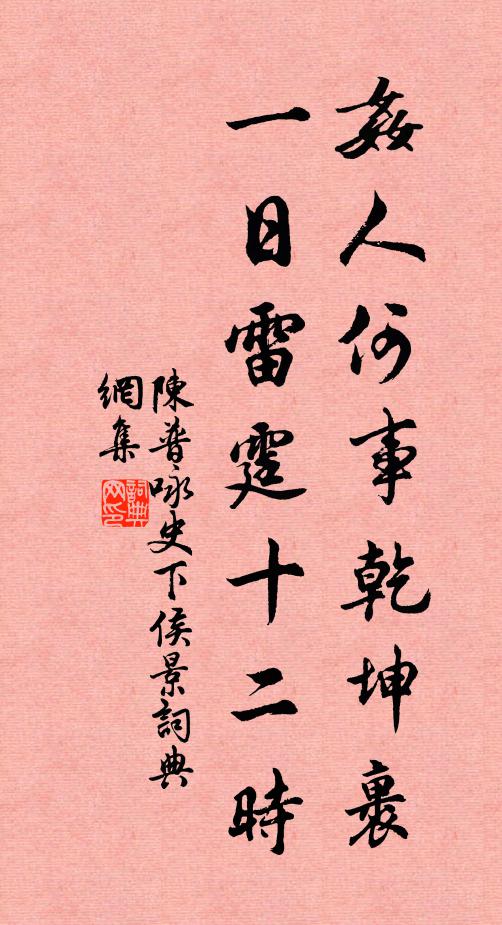 姦人何事乾坤裏
一日雷霆十二時
陳普咏史下侯景詞典
網集
詞典
网印